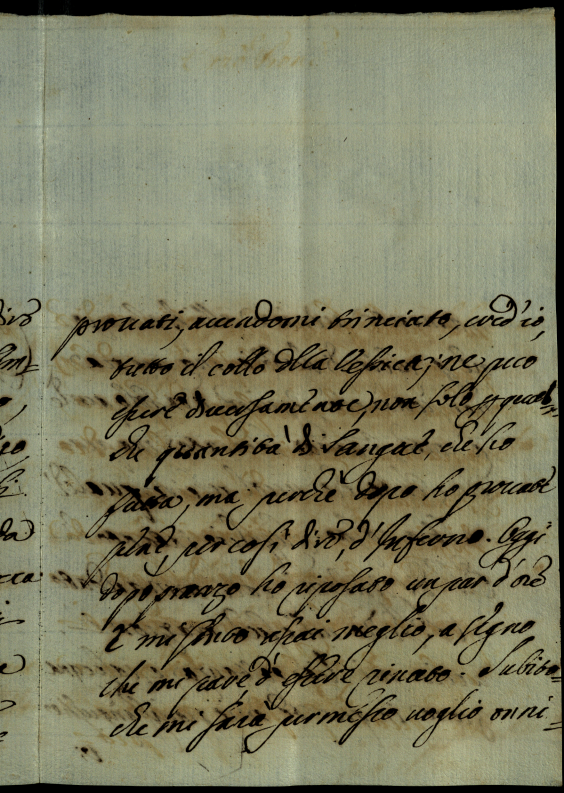 provati, avendomi trinciato, cred'io,
tutto il collo della Vessica; ne può
essere diversamente, non solo p qual=
che quantità di Sangue, che ho
fatta, ma perchè dopo ho provate
pene, per così dire, d'Inferno. Oggi
dopo pranzo ho riposato un par d'ore
e mi sento assai meglio, a segno
che mi pare d'essere rinato. Subito
che mi sarà permesso voglio onni=